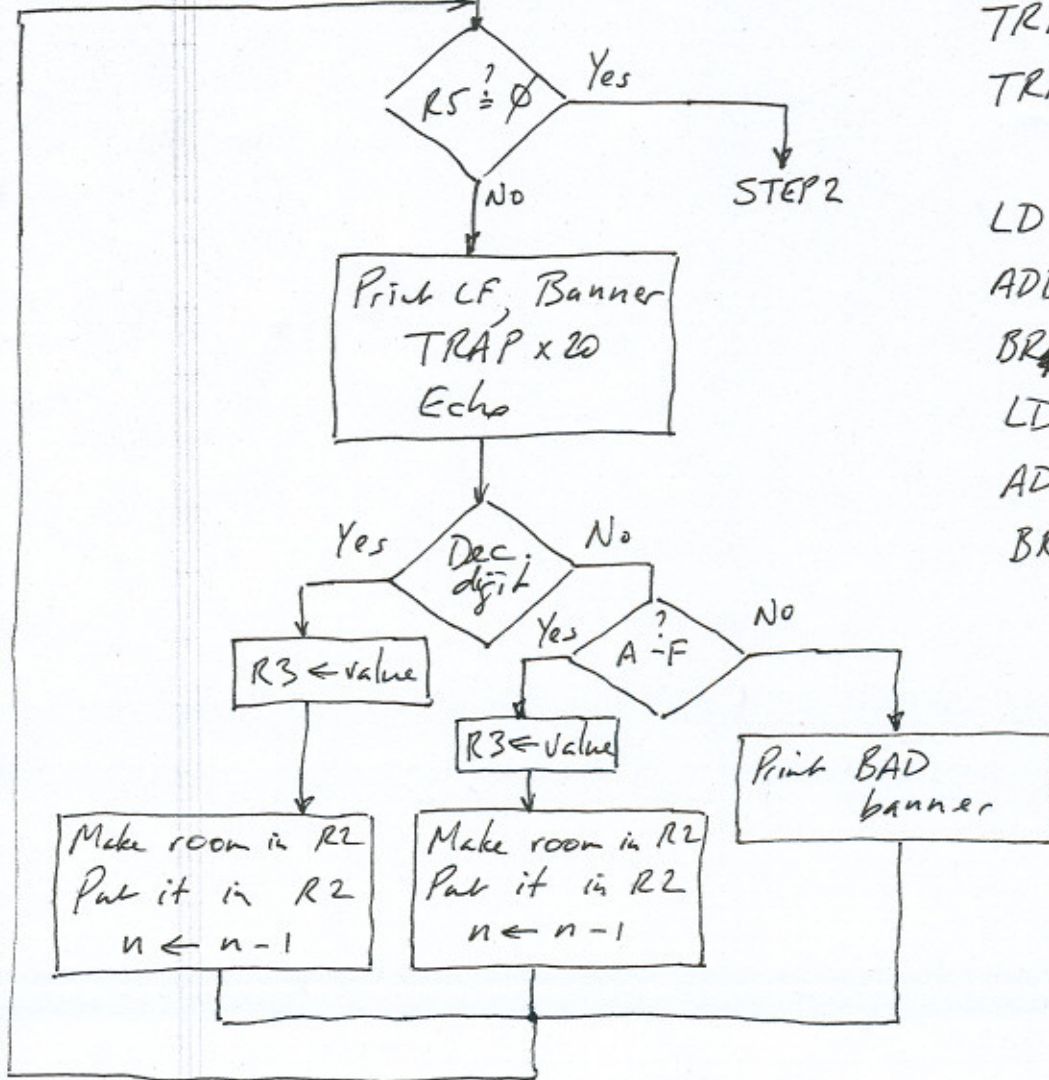 R5 ?= Ø
Yes
No
STEP 2
Print LF, Banner
TRAP x20
Echo
Yes
Dec.
digit
No
R3 ← value
Yes
?
A-F
No
R3 ← value
Print BAD
banner
Make room in R2
Put it in R2
n ← n-1
Make room in R2
Put it in R2
n ← n-1
LD
BR
LD
BR